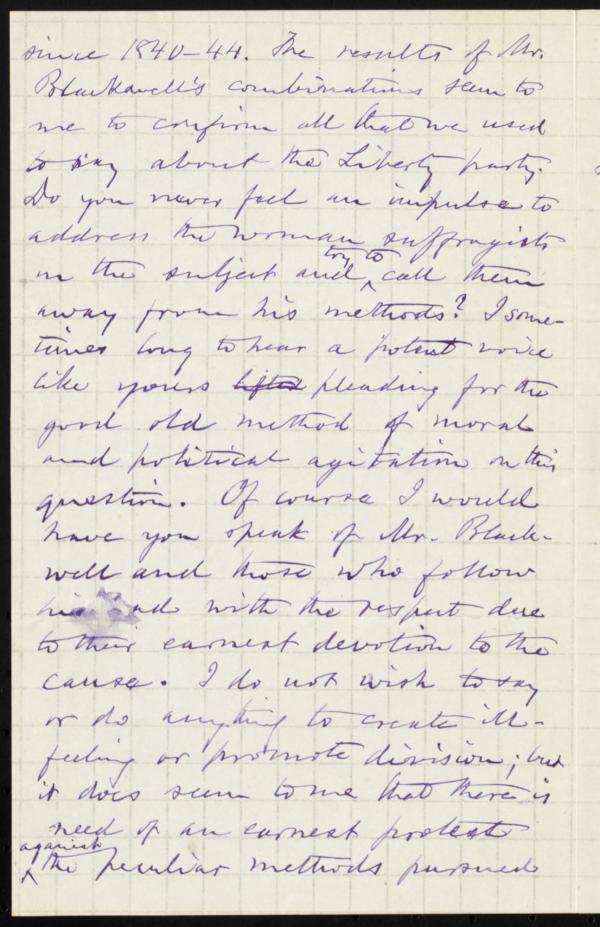 since 1840-44. The results of Mr.
Blackwell's combinations seem to
me to confirm all that we used
to say about the Liberty party.
Do you never feel an impulse to
address the woman suffragists
on the subject and try to call them
away from his methods? I some-
times long to hear a potent voice
like yours lifted pleading for the
good old method of moral
and political agitation on this
question. Of course I would
have you speak of Mr. Black-
well and those who follow
with the respect due
to their earnest devotion to the
cause. I do not wish to say
or do anything to create ill-
feeling or promote division; but
it does seem to me that there is
need of an earnest protest
against the peculiar methods pursued